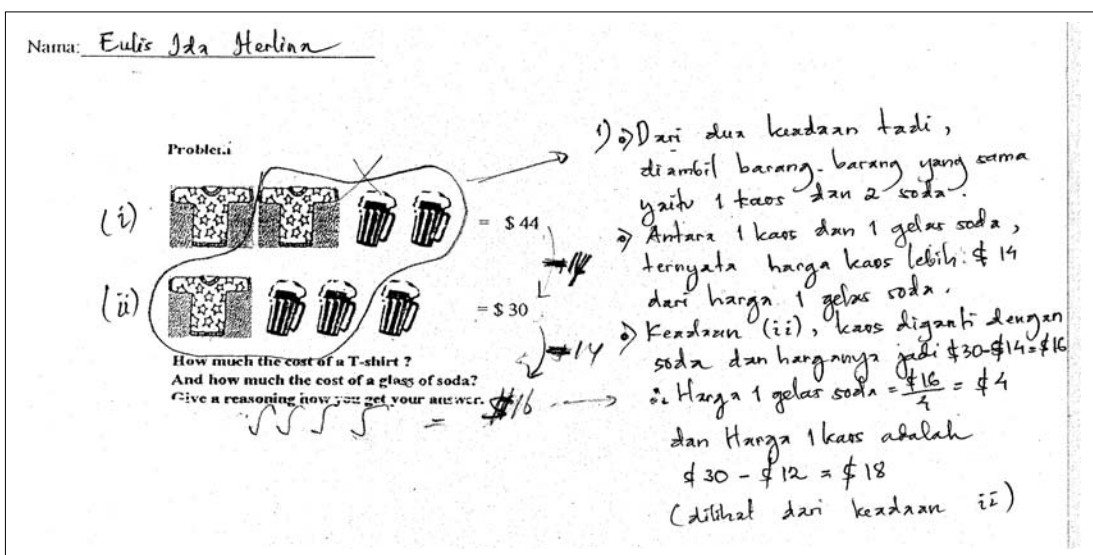 Nama: Eulis Ida Herlina
Problem
(i)
= $ 44
(ii)
= $ 30
14
How much the cost of a T-shirt ?
And how much the cost of a glass of soda?
Give a reasoning how you get your answer.
= $16
1) Dari dua keadaan tadi,
diambil barang-barang yang sama
yaitu 1 kaos dan 2 soda.
Antara 1 kaos dan 1 gelas soda,
ternyata harga kaos lebih $ 14
dari harga 1 gelas soda.
Keadaan (ii), kaos diganti dengan
soda dan harganya jadi $30-$14=$16
∴ Harga 1 gelas soda = $16/4 = $4
dan Harga 1 kaos adalah
$30 - $12 = $18
(dilihat dari keadaan ii)